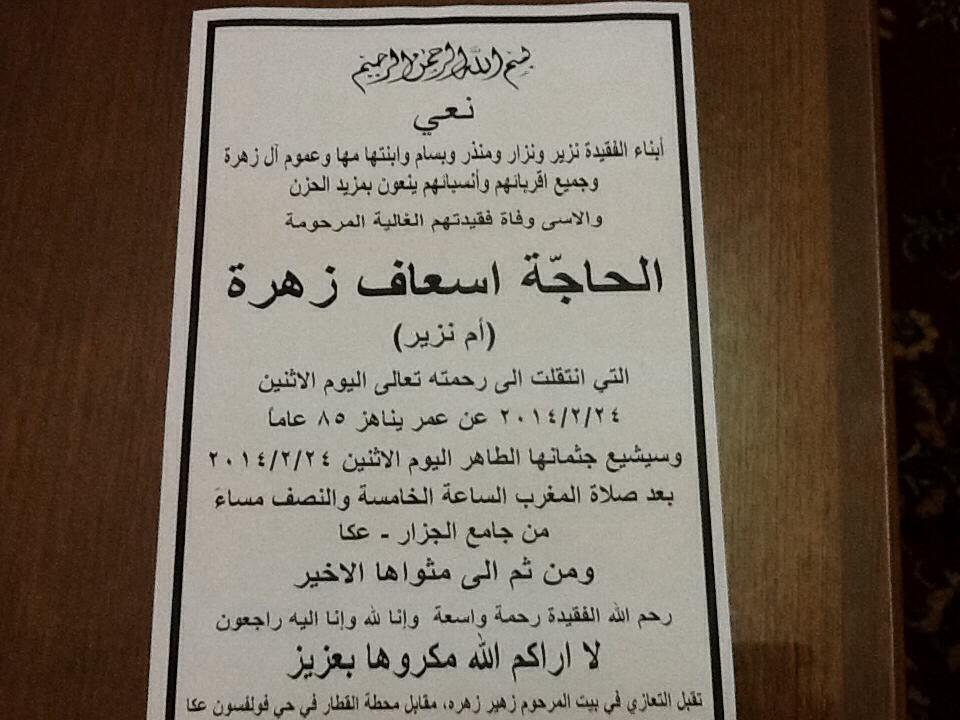 بسم الله الرحمن الرحيم
نعي
أبناء الفقيدة نزير ونزار ومنذر وبسام وابنتها مها وعموم آل زهرة
وجميع اقربائهم وأنسبائهم ينعون بمزيد الحزن
والاسى وفاة فقيدتهم الغالية المرحومة
الحاجّة اسعاف زهرة
(أم نزير)
التي انتقلت الى رحمته تعالى اليوم الاثنين
٢٠١٤/٢/٢٤ عن عمر يناهز ٨٥ عاماً
وسيشيع جثمانها الطاهر اليوم الاثنين ٢٠١٤/٢/٢٤
بعد صلاة المغرب الساعة الخامسة والنصف مساءً
من جامع الجزار - عكا
ومن ثم الى مثواها الاخير
رحم الله الفقيدة رحمة واسعة وإنا لله وإنا اليه راجعون
لا اراكم الله مكروها بعزيز
تقبل التعازي في بيت المرحوم زهير زهره، مقابل محطة القطار في حي فولفسون عكا